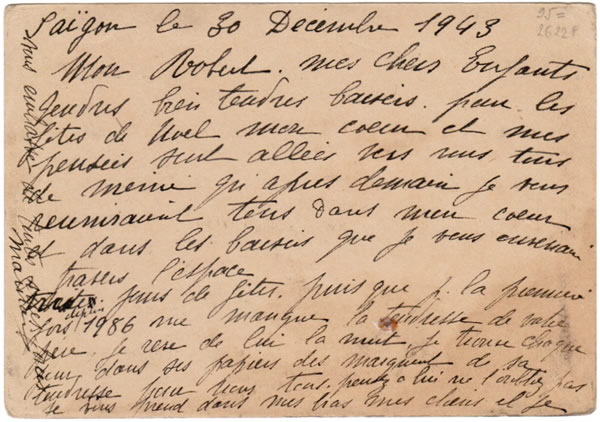 Saïgon le 30 Decembre 1943
25=
26228
Mon Robert. mes chers Enfants
tendres bien tendres baisers. pour les
fêtes de Noel mon coeur et mes
pensées sont allées vers vous tous
de meme qu'apres demain je vous
reunirai tous dans mon coeur
et dans les baisers que je vous enverrai
travers l'espace
jours de fêtes. puisque p. la premiere
fois 1936 me manque la tendresse de votre
père. je reve de lui la nuit, je trouve chaque
jour dans ses papiers des marques de sa
tendresse pour nous tous. pensez a lui ne l'oubliez pas
je vous prend dans mes bras mes cheris et je
vous embrasse de toutes
Maman